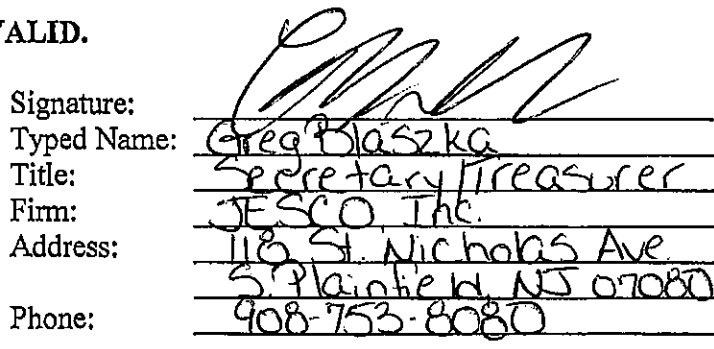 VALID.
Signature:
Typed Name: Greg Blaszka
Title: Secretary/Treasurer
Firm: JESCO Inc.
Address: 118 St. Nicholas Ave
S. Plainfield, NJ 07080
Phone: 908-753-8080